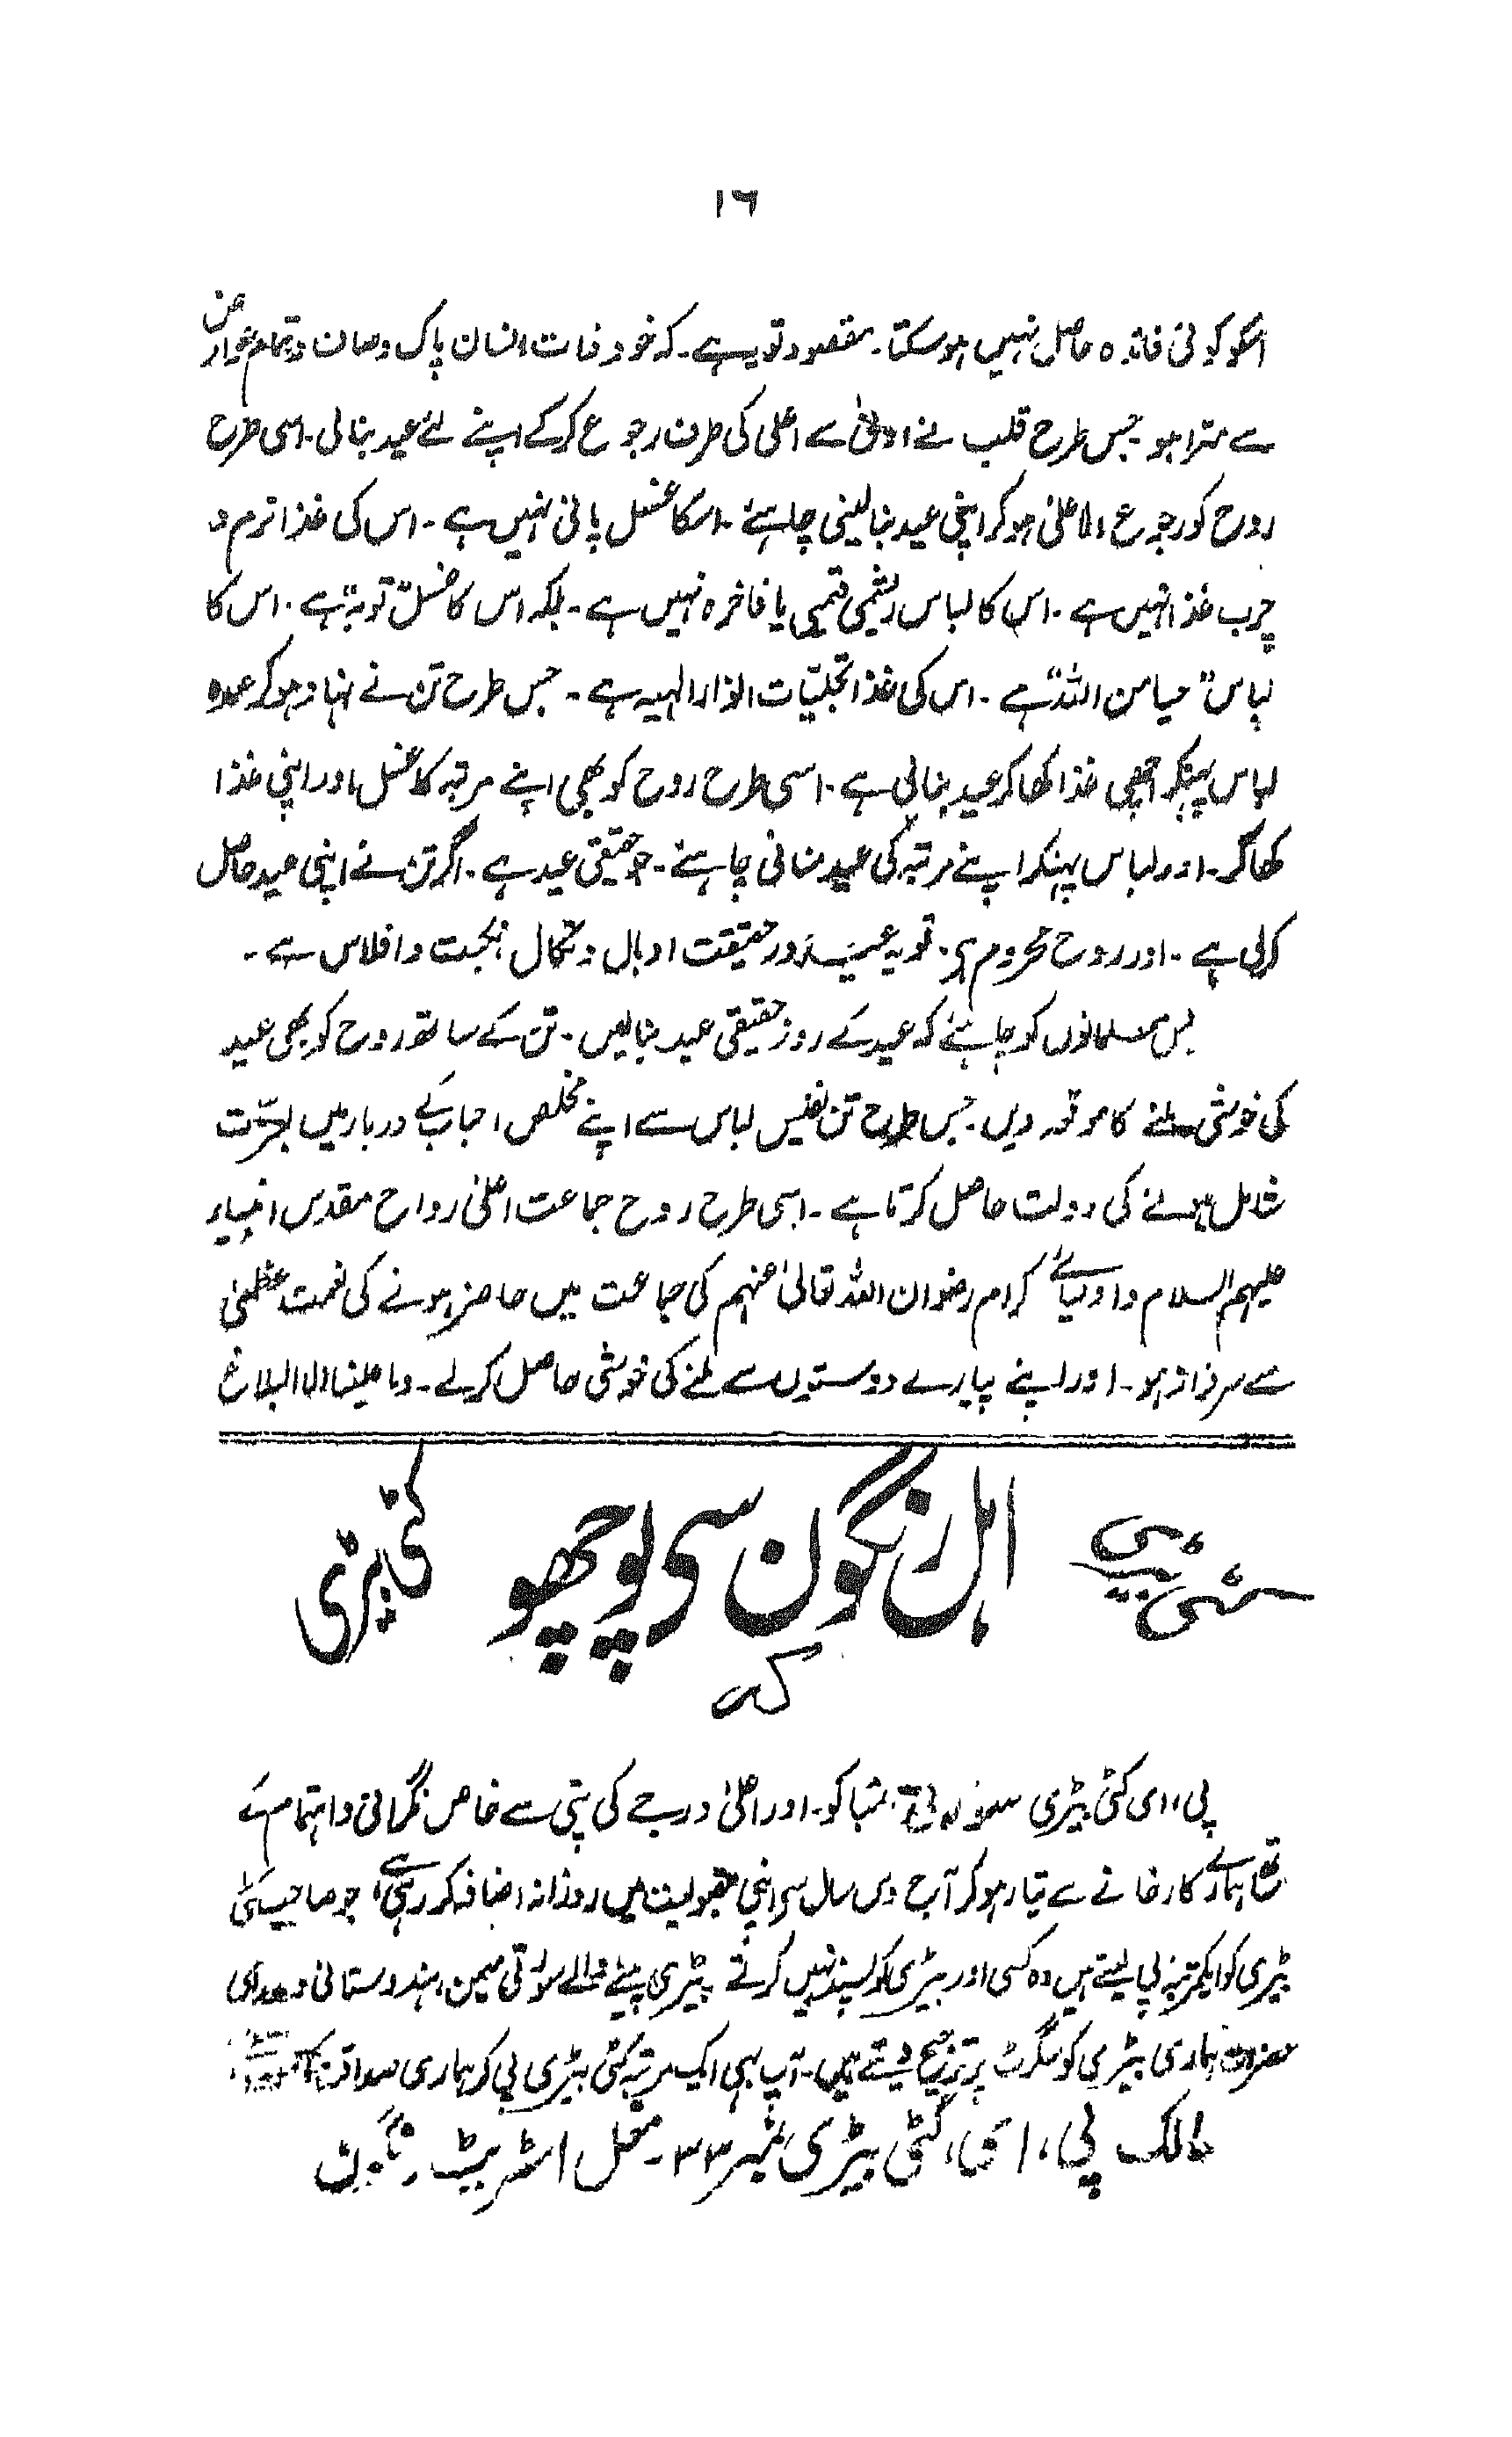 ۱۶
اسکو کوئی فائدہ حاصل نہیں ہوسکتا۔ مقصود تو یہ ہے۔ کہ خود ذات انسان پاک وصاف و تمام عوارض
سے مبترا ہو۔ جس طرح قلب نے ادنیٰ سے اعلیٰ کی طرف رجوع کرکے اپنے لئے عید بنالی۔ اسی طرح
روح کو رجوع الاعلیٰ ہوکر اپنی عید بنالینی چاہئے۔ اسکا غسل پانی نہیں ہے۔ اس کی غذا نرم و
چرب غذا نہیں ہے۔ اس کا لباس ریشمی قیمتی یا فاخرہ نہیں ہے۔ بلکہ اس کا غسل "توبہ" ہے۔ اس کا
لباس "حیا من اللہ" ہے۔ اس کی غذا تجلیّات انوار الٰہیہ ہے۔ جس طرح تن نے نہا دہوکے عمدہ
لباس پہنکر اچھی غذا کھاکر عید بنالی ہے۔ اسی طرح روح کو بھی اپنے مرتبہ کا غسل، اور اپنی غذا
کھاکر۔ اور لباس پہنکر اپنے مرتبہ کی عید منانی چاہئے۔ جو حقیقی عید ہے۔ اگر تن نے اپنی عید حاصل
کرلی ہے۔ اور روح محروم ہے۔ تو یہ عید در حقیقت ادبال و نکال نکبت و افلاس ہے۔
بس مسلمانوں کو چاہئے کہ عید کے روز حقیقی عید بنالیں۔ تن کے ساتھ روح کو بھی عید
کی خوشی ملنے کا موقعہ دیں۔ جس طرح تن نفیس لباس سے اپنے مخلص احباب کے دربار میں بسرّت
شامل ہونے کی دولت حاصل کرتا ہے۔ اسی طرح روح جماعت اعلیٰ رواح مقدس انبیاء
علیہم السلام و اولیائے کرام رضوان اللہ تعالیٰ عنہم کی جماعت میں حاضر ہونے کی نعمت عظمیٰ
سے سرفراز ہو۔ اور اپنے پیارے دوستوں سے ملنے کی خوشی حاصل کرلے۔ وما علینا الا البلاغ
اہل رنگون سی پوچھو
کٹی بیڑی
کہ
پی، ای کٹی بیڑی تمباکو۔ اور اعلیٰ درجے کی پتی سے خاص نگرانی و اہتمام کے
ساتھ ہمارے کارخانے سے تیار ہوکر آج دس سال سے اپنی مقبولیت میں روزانہ اضافہ کررہی ہے، جو صاحب کٹی
بیڑی کو ایکمرتبہ پی لیتے ہیں وہ کسی اور بیڑی کو پسند نہیں کرتے بیڑی پینے والے سورتی میمن، ہندوستانی و مدراسی
حضرات ہماری بیڑی کو سگرٹ پر ترجیح دیتے ہیں۔ آپ بھی ایک مرتبہ کٹی بیڑی پی کر ہماری صداقت کا
مالک پی، ای، کٹی بیڑی نمبر ۳۳۔ مغل اسٹریٹ رنگون